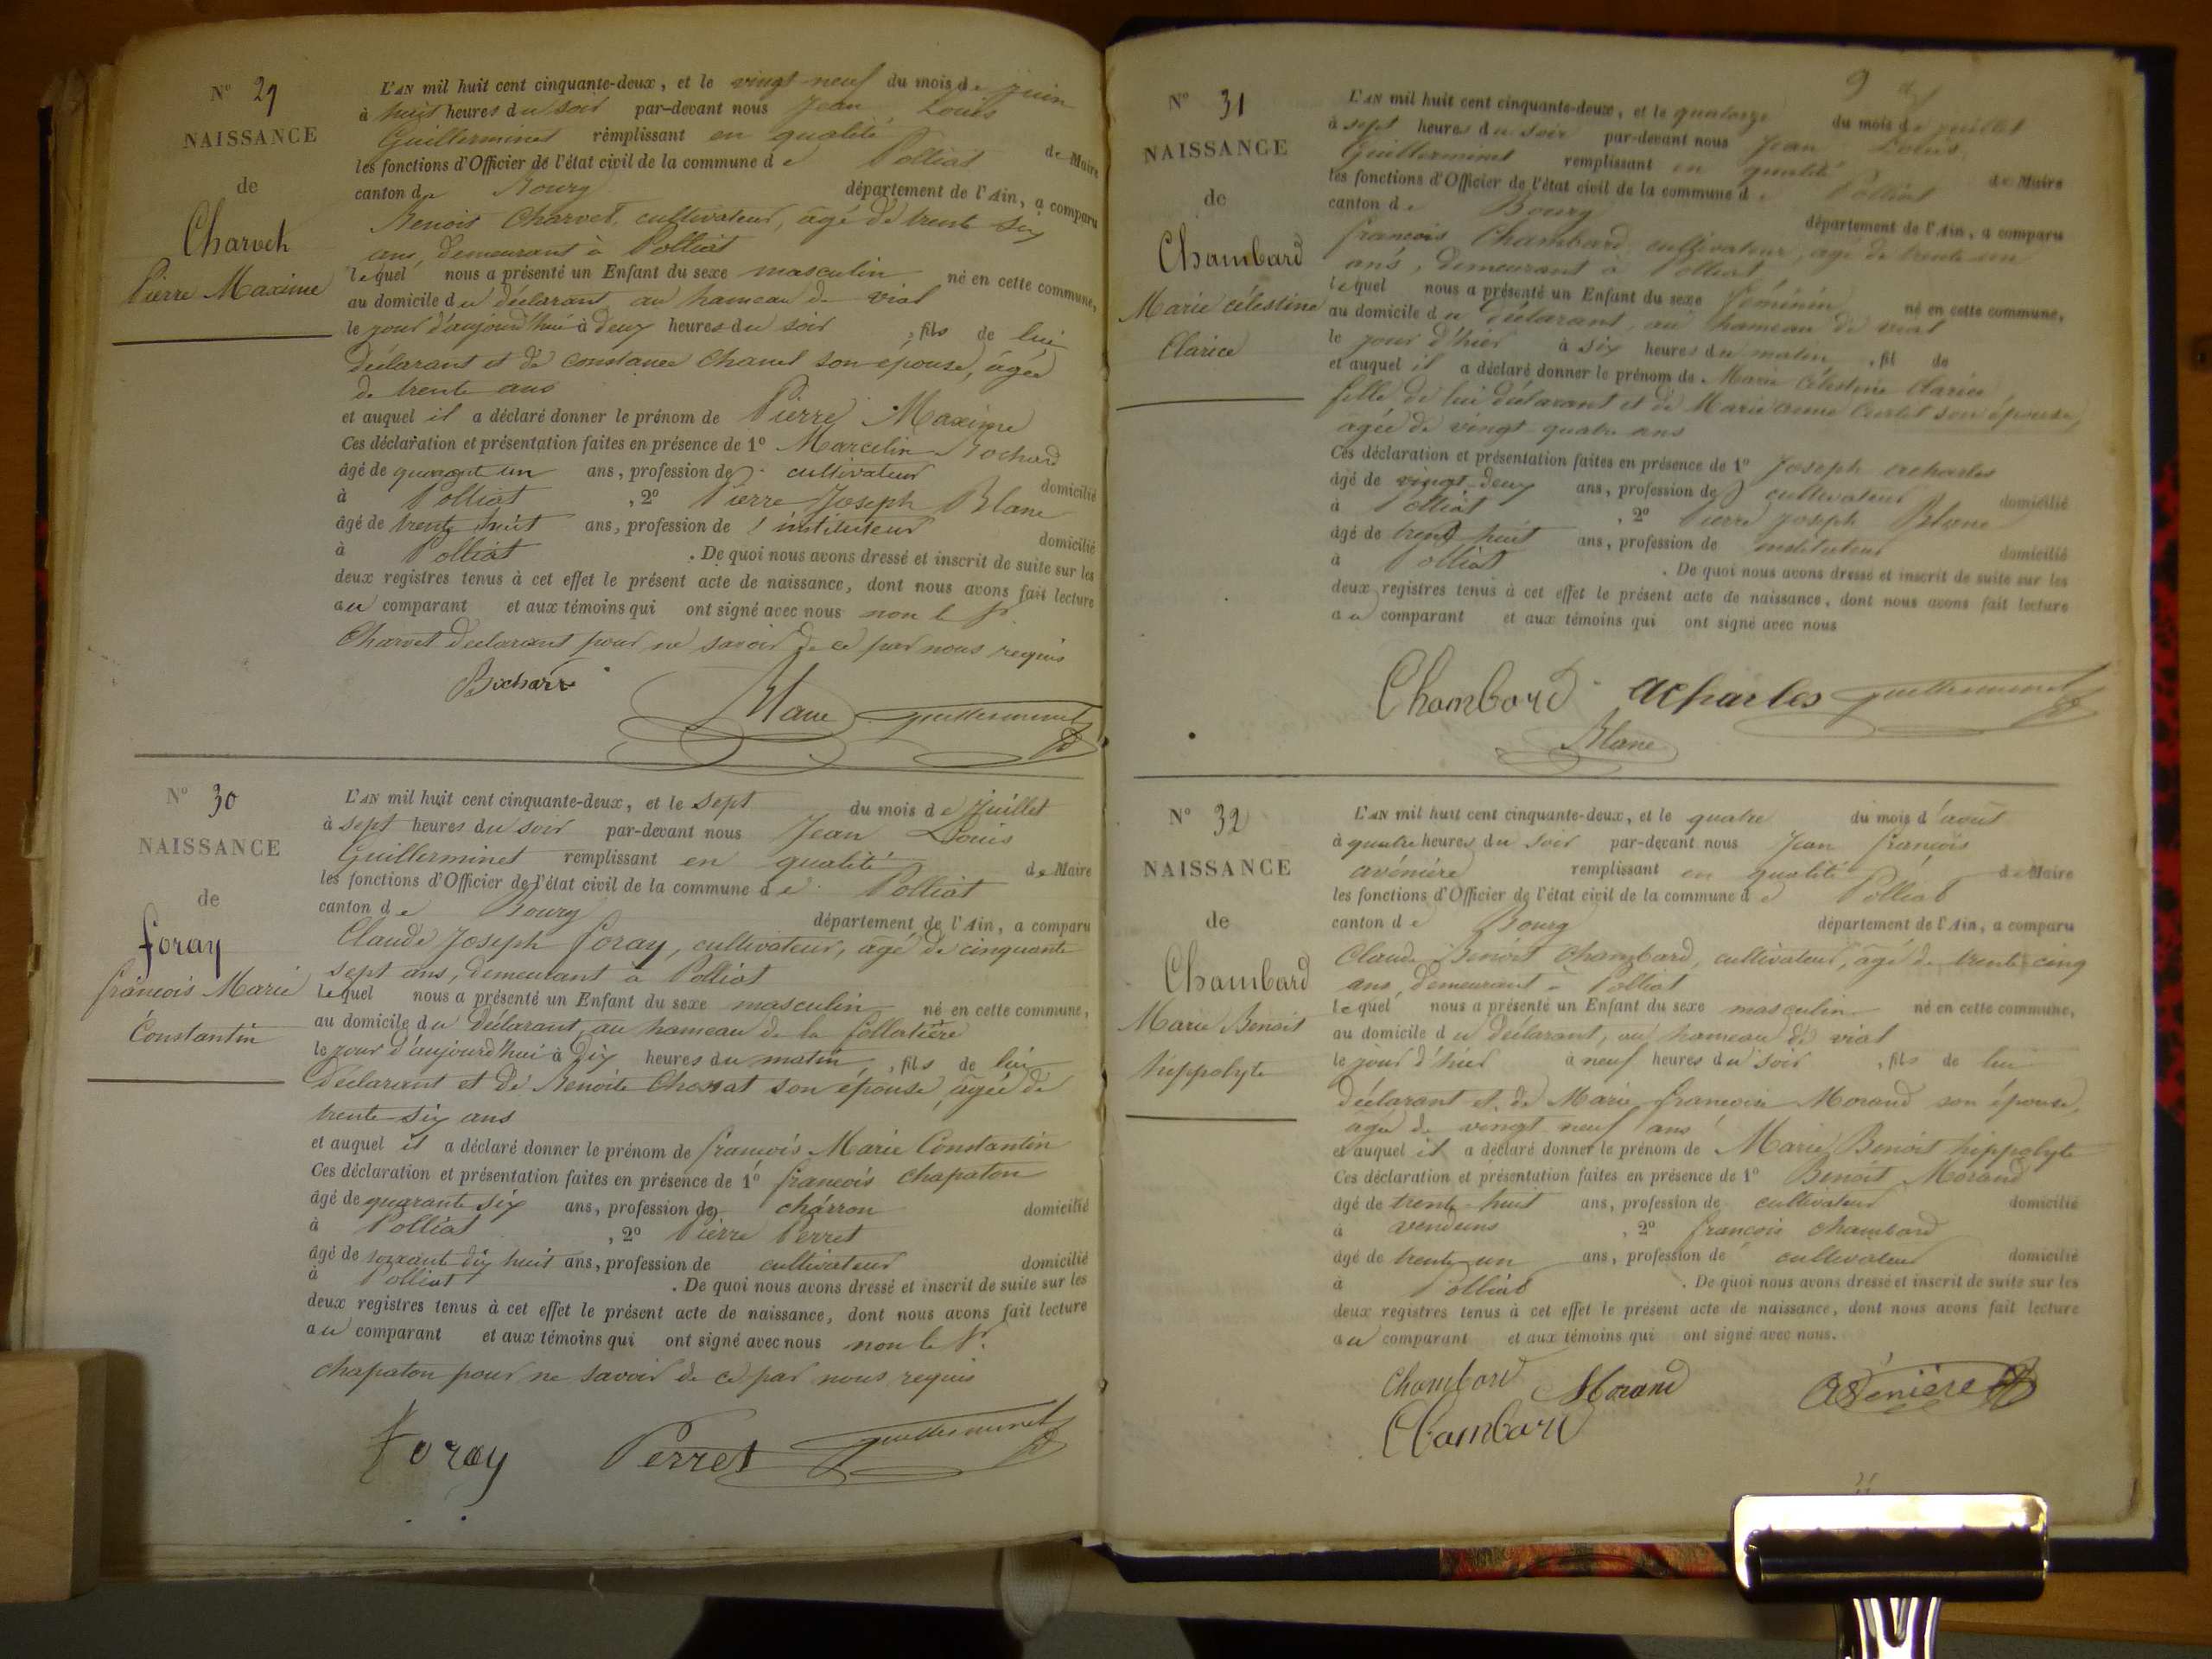 N° 29
NAISSANCE
de
Charvet
Pierre Maxime
L'AN mil huit cent cinquante-deux, et le vingt neuf du mois de juin
à huit heures du soir par-devant nous Jean Louis
Guillerminet remplissant en qualité de Maire
les fonctions d'Officier de l'état civil de la commune de Polliat
canton de Bourg département de l'Ain, a comparu
Benoit Charvet, cultivateur, âgé de trente six
ans, demeurant à Polliat
lequel nous a présenté un Enfant du sexe masculin né en cette commune,
au domicile du déclarant, au hameau de vial
le jour d'aujourd'hui à deux heures du soir, fils de lui
déclarant et de constance Chanel son épouse, âgée
de trente ans
et auquel il a déclaré donner le prénom de Pierre Maxime
Ces déclaration et présentation faites en présence de 1° Marcelin Bochard
âgé de quarante un ans, profession de cultivateur domicilié
à Polliat, 2° Pierre Joseph Blanc
âgé de trente huit ans, profession de instituteur domicilié
à Polliat. De quoi nous avons dressé et inscrit de suite sur les
deux registres tenus à cet effet le présent acte de naissance, dont nous avons fait lecture
au comparant et aux témoins qui ont signé avec nous non le Sr
Charvet déclarant pour ne savoir de ce par nous requis
Bochard Blanc guillerminet
N° 30
NAISSANCE
de
foray
françois Marie
Constantin
L'AN mil huit cent cinquante-deux, et le sept du mois de juillet
à sept heures du soir par-devant nous Jean Louis
Guillerminet remplissant en qualité de Maire
les fonctions d'Officier de l'état civil de la commune de Polliat
canton de Bourg département de l'Ain, a comparu
Claude Joseph foray, cultivateur, âgé de cinquante
sept ans, demeurant à Polliat
lequel nous a présenté un Enfant du sexe masculin né en cette commune,
au domicile du déclarant, au hameau de la follatière
le jour d'aujourd'hui à dix heures du matin, fils de lui
déclarant et de Benoite Chossat son épouse, âgée de
trente six ans
et auquel il a déclaré donner le prénom de françois Marie Constantin
Ces déclaration et présentation faites en présence de 1° françois chapaton
âgé de quarante six ans, profession de charron domicilié
à Polliat, 2° Pierre Perret
âgé de soixante dix huit ans, profession de cultivateur domicilié
à Polliat. De quoi nous avons dressé et inscrit de suite sur les
deux registres tenus à cet effet le présent acte de naissance, dont nous avons fait lecture
au comparant et aux témoins qui ont signé avec nous non le Sr.
chapaton pour ne savoir de ce par nous requis
Foray Perret guillerminet
9
N° 31
NAISSANCE
de
Chambard
Marie célestine
Clarice
L'AN mil huit cent cinquante-deux, et le quatorze du mois de juillet
à sept heures du soir par-devant nous Jean Louis
Guillerminet remplissant en qualité de Maire
les fonctions d'Officier de l'état civil de la commune de Polliat
canton de Bourg département de l'Ain, a comparu
françois Chambard, cultivateur, âgé de trente un
ans, demeurant à Polliat
lequel nous a présenté un Enfant du sexe féminin né en cette commune,
au domicile du déclarant, au hameau de vial
le jour d'hier à six heures du matin, fil de
et auquel il a déclaré donner le prénom de Marie Célestine Clarice
fille de lui déclarant et de Marie anne Curtet son épouse,
âgée de vingt quatre ans
Ces déclaration et présentation faites en présence de 1° Joseph acharles
âgé de vingt-deux ans, profession de cultivateur domicilié
à Polliat, 2° Pierre Joseph Blanc
âgé de trente huit ans, profession de instituteur domicilié
à Polliat. De quoi nous avons dressé et inscrit de suite sur les
deux registres tenus à cet effet le présent acte de naissance, dont nous avons fait lecture
au comparant et aux témoins qui ont signé avec nous
Chambard acharles guillerminet
Blanc
N° 32
NAISSANCE
de
Chambard
Marie Benoit
hippolyte
L'AN mil huit cent cinquante-deux, et le quatre du mois d'août
à quatre heures du soir par-devant nous Jean françois
avénière remplissant en qualité de Maire
les fonctions d'Officier de l'état civil de la commune de Polliat
canton de Bourg département de l'Ain, a comparu
Claude Benoit Chambard, cultivateur, âgé de trente cinq
ans, demeurant à Polliat
lequel nous a présenté un Enfant du sexe masculin né en cette commune,
au domicile du déclarant, au hameau de vial
le jour d'hier à neuf heures du soir, fils de lui
déclarant et de Marie françoise Morand son épouse,
âgée de vingt neuf ans
et auquel il a déclaré donner le prénom de Marie Benoit hippolyte
Ces déclaration et présentation faites en présence de 1° Benoit Morand
âgé de trente-huit ans, profession de cultivateur domicilié
à vandeins, 2° françois chambard
âgé de trente un ans, profession de cultivateur domicilié
à Polliat. De quoi nous avons dressé et inscrit de suite sur les
deux registres tenus à cet effet le présent acte de naissance, dont nous avons fait lecture
au comparant et aux témoins qui ont signé avec nous.
Chambard Morand avenière
Chambard